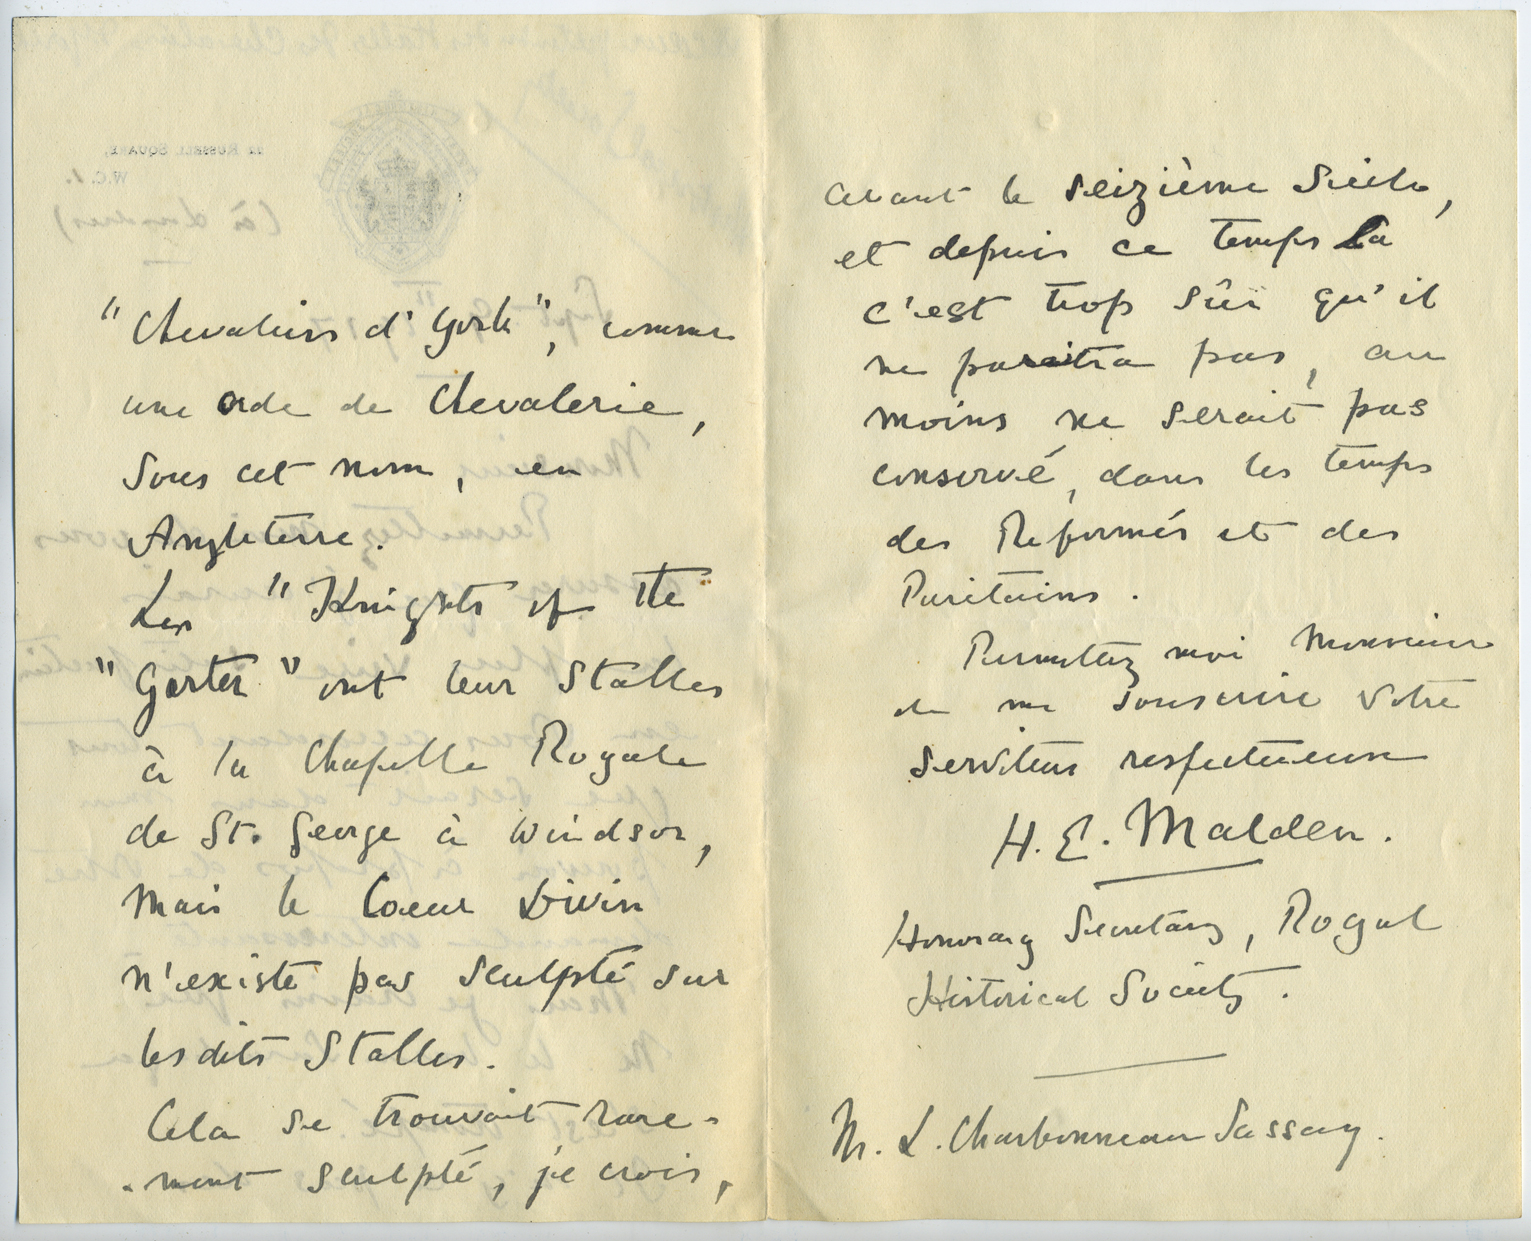 "Chevaliers d'York", comme
une orde de Chevalerie,
sous cet nom, en
Angleterre.
Les "Knights of the
"Garter" ont leur Stalles
à la Chapelle Royale
de St. George à Windsor,
mais le Coeur Divin
n'existe pas sculpté sur
les dits Stalles.
Cela se trouvait rare-
-ment sculpté, je crois,
avant le seizième Siècle,
et depuis ce temps La
c'est trop sûr qu'il
ne paraitra pas, au
moins ne serait pas
conservé, dans les temps
des Reformés et des
Puritains.
Permettez moi Monsieur
de me souscrire votre
Serviteur respectueux
H. E. Malden.
Honorary Secretary, Royal
Historical Society.
M. L. Charbonneau Lassay.
RUSSELL SQUARE,
W.C.1.
(à Londres)